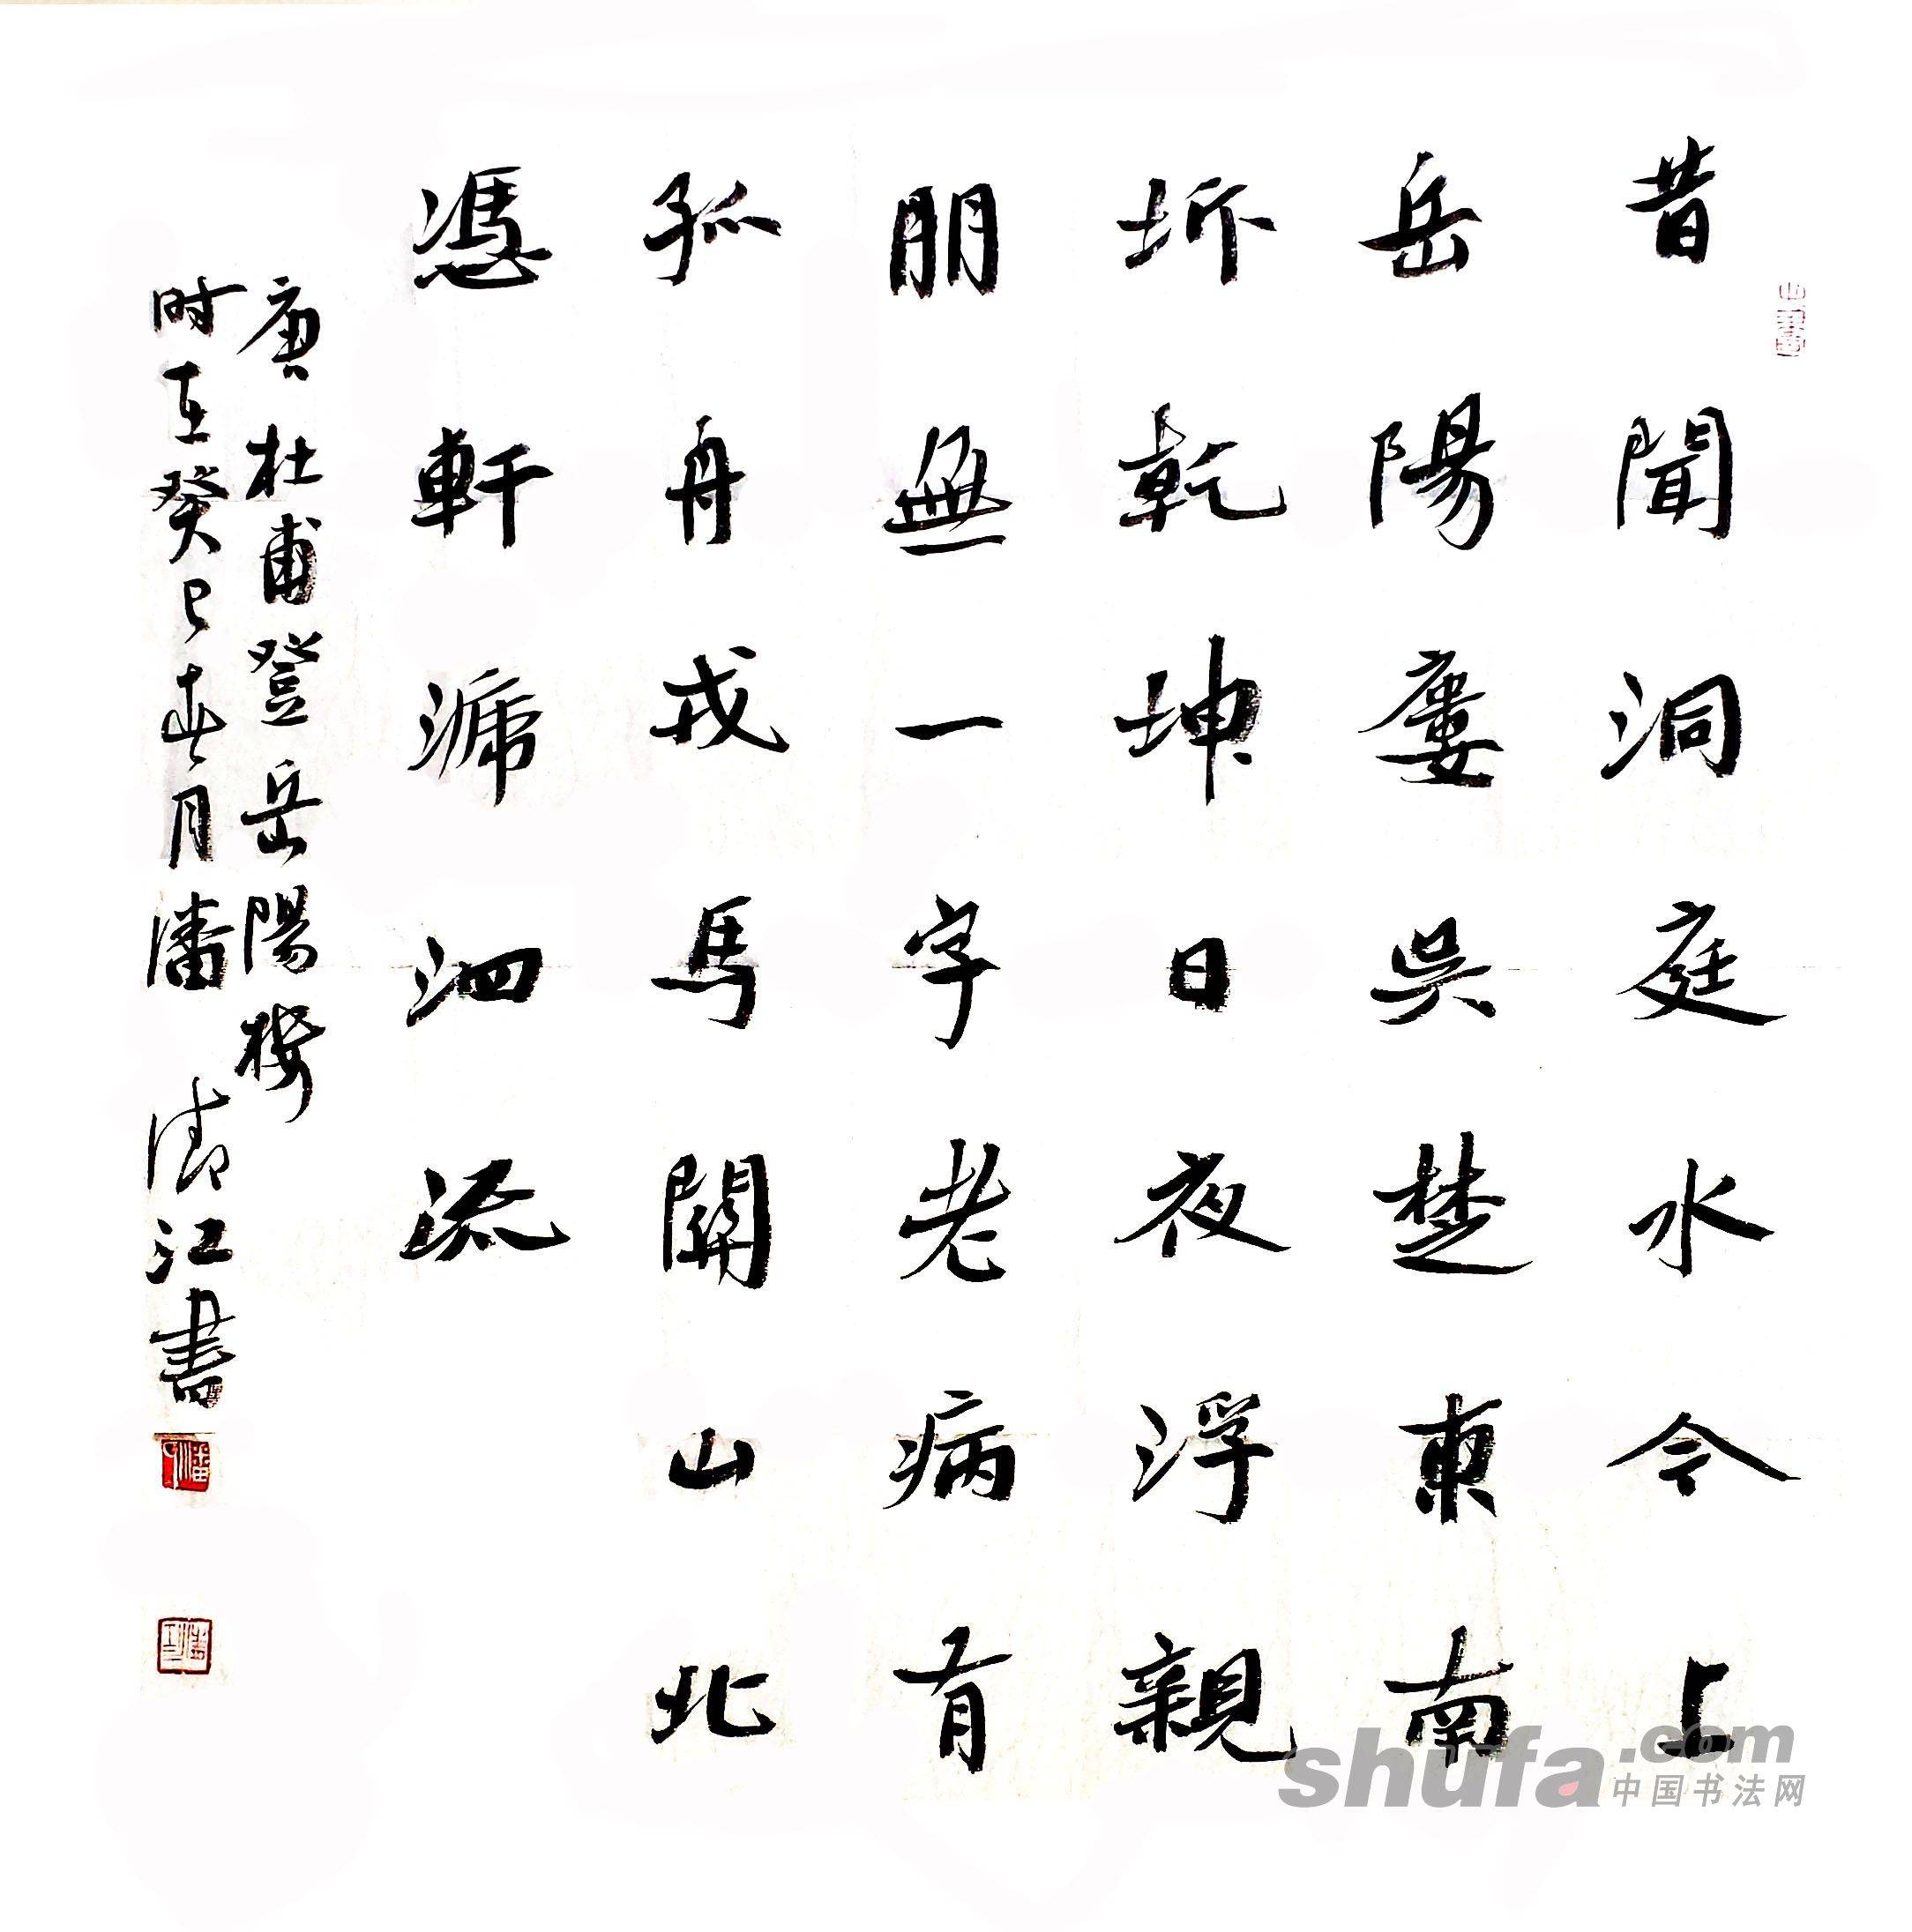 昔聞洞庭水今上
岳陽廔吳楚東南
坼乾坤日夜浮親
朋無一字老病有
孤舟戎馬關山北
憑軒涕泗流
唐杜甫登岳陽樓
时在癸巳春月潘清江書
shufa.com
中国书法网